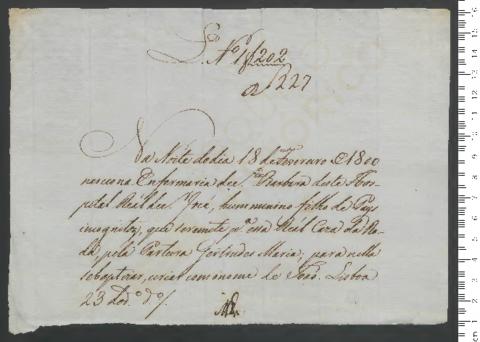 L.º Nº 1 f 202
a 227
Na Noite do dia 18 de Fevereiro de 1800
nasceo na Enfermaria de S.ta Barbara deste Hos-
pital Real de S. José, hum menino filho de Pays
incognitos, que se remete p.a essa Real Caza da Ro-
da, pela Parteira Gertrudes Maria; para nella
se baptizar, e criar com o nome de José. Lisboa
23 do d.º